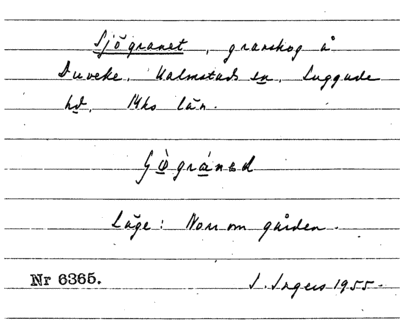 Sjögranet, granskog å
Duveke, Kalmstads sn, Luggude
hd, Mhs län.
Läge: Norr om gården.
Nr 6365. I. Ingers 1955.